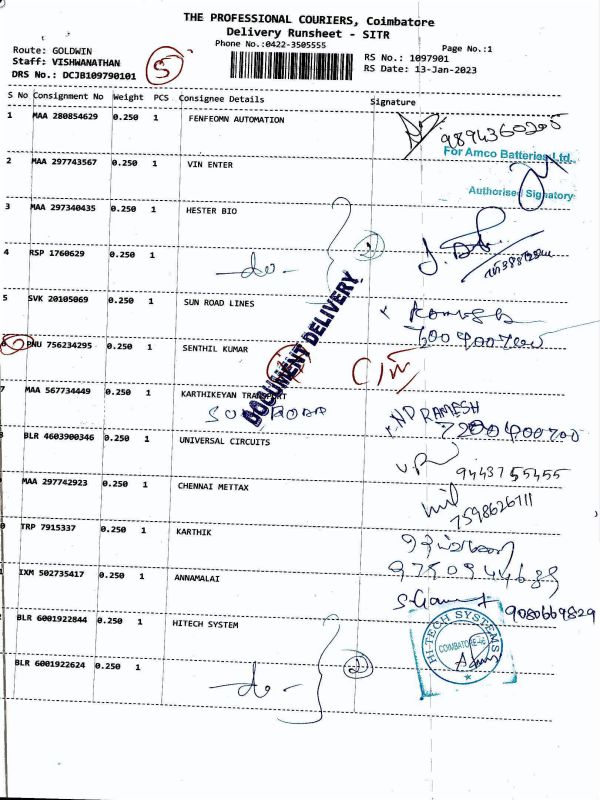 THE PROFESSIONAL COURIERS, Coimbatore
Delivery Runsheet - SITR
Phone No.:0422-3505555
Page No.:1
Route: GOLDWIN
Staff: VISHWANATHAN
DRS No.: DCJB109790101
5
RS No.: 1097901
RS Date: 13-Jan-2023
S No Consignment No Weight PCS Consignee Details Signature
1 MAA 280854629 0.250 1 FENFEOMN AUTOMATION
9894360205
For Amco Batteries Ltd.,
2 MAA 297743567 0.250 1 VIN ENTER
Authorised Signatory
3 MAA 297340435 0.250 1 HESTER BIO
2
4 RSP 1760629 0.250 1 -do-
5 SVK 20105069 0.250 1 SUN ROAD LINES
DOCUMENT DELIVERY
6 PNU 756234295 0.250 1 SENTHIL KUMAR
7 MAA 567734449 0.250 1 KARTHIKEYAN TRANSPORT
NP RAMESH
7200400700
BLR 4603900346 0.250 1 UNIVERSAL CIRCUITS
9443755455
MAA 297742923 0.250 1 CHENNAI METTAX
7598626711
0 TRP 7915337 0.250 1 KARTHIK
1 IXM 502735417 0.250 1 ANNAMALAI
9080669829
BLR 6001922844 0.250 1 HITECH SYSTEM
HI-TECH SYSTEMS
COIMBATORE
BLR 6001922624 0.250 1 -do-
2